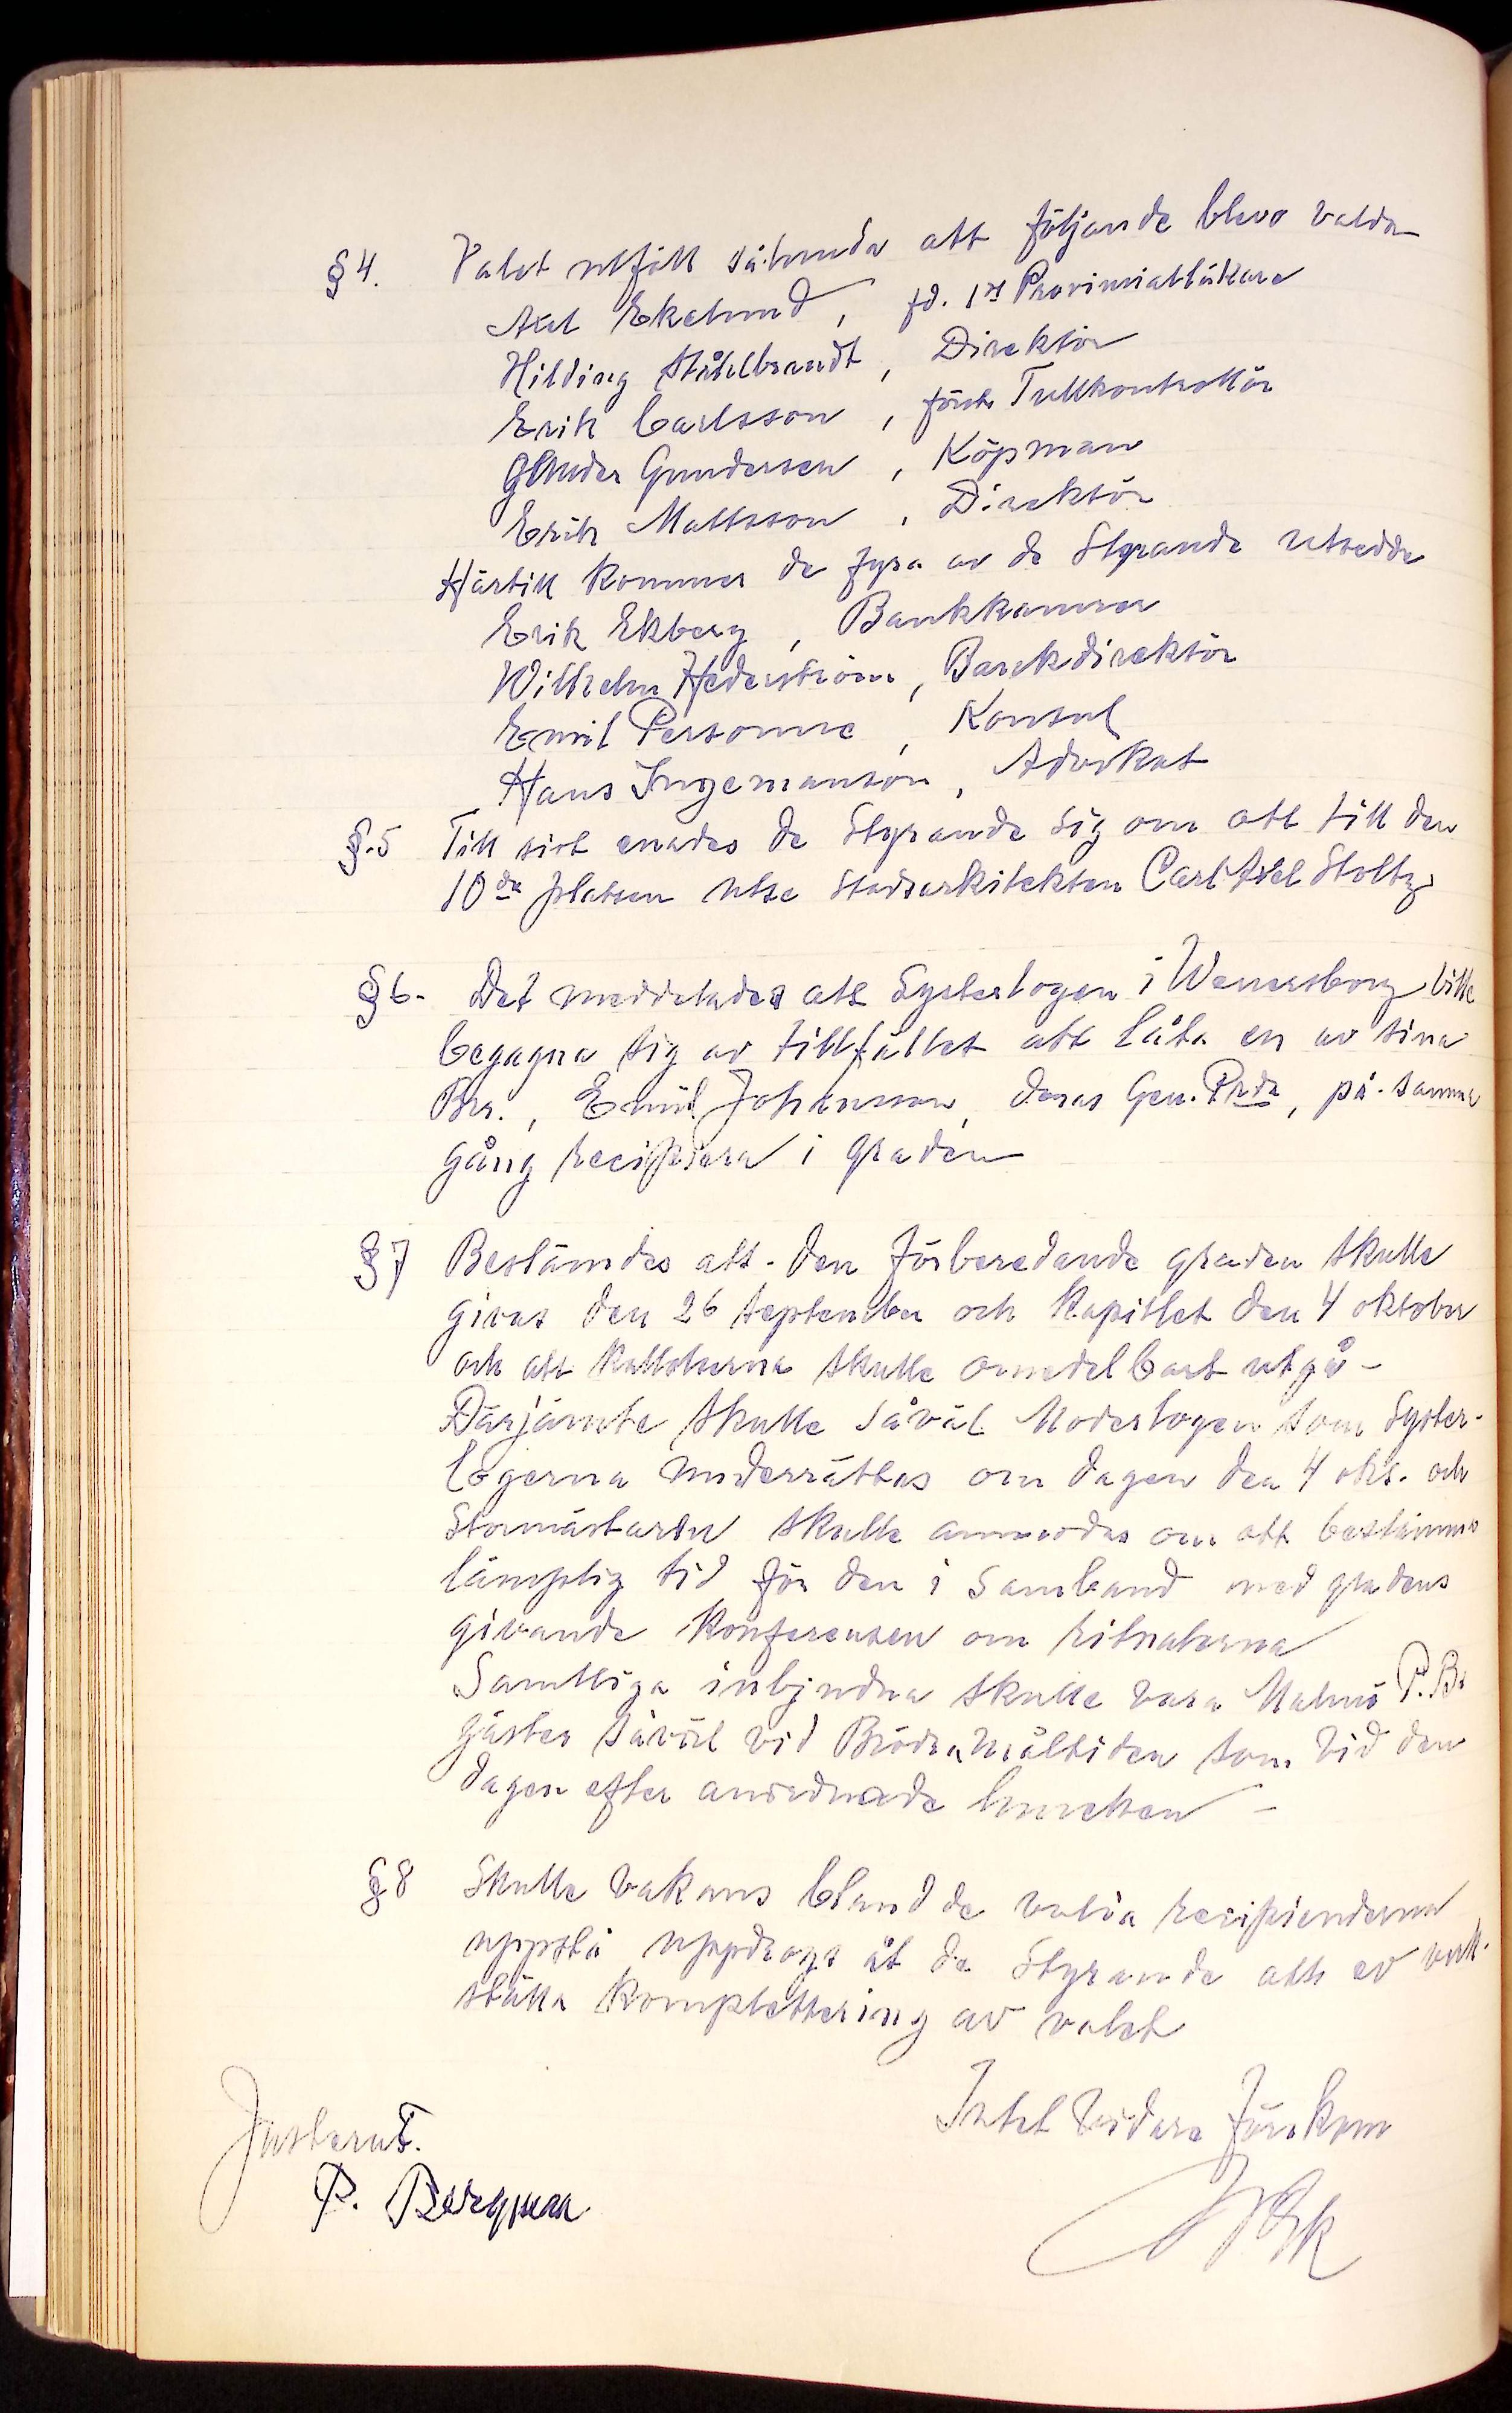 § 4. Valet utföll sålunda att följande blevo valda
Axel Ekelund, fd. 1st Provinsialläkare
Hilding Ståhlbrandt, Direktör
Erik Carlsson, förste Tullkontrollör
Gunder Gundersen, Köpman
Erik Mattsson, Direktör
Härtill kommer de fyra av de Styrande utsedda
Erik Ekberg, Bankkamrer
Wilhelm Hedenström, Bankdirektör
Emil Personne, Konsul
Hans Ingemanson, Advokat
§.5 Till sist enades de Styrande sig om att till den
10de platsen utse stadsarkitekten Carl Axel Stoltz
§ 6- Det meddelades att Systerlogen i Wenersborg ville
begagna sig av tillfället att låta en av sina
Brr., Emil Johansson, deras Gen. Prdr, på samma
gång recipiera i graden
§ 7 Bestämdes att den förberedande graden skulle
givas den 26 september och Kapitlet den 4 oktober
och att kallelserna skulle omedelbart utgå -
Därjämte skulle såväl Moderlogen som Syster-
logerna underrättas om dagen den 4 okt. och
Stormästaren skulle anmodas om att bestämma
lämplig tid för den i samband med gradens
givande konferensen om ritualerna
Samtliga inbjudna skulle vara Malmö P.Br
gäster såväl vid Brödramåltiden som vid den
dagen efter anordnade lunchen -
§ 8 Skulle vakans bland de valda recipienderna
uppstå uppdrogs åt de Styrande att ev verk-
ställa komplettering av valet
Intet vidare förekom
Justerat.
P. Bergman